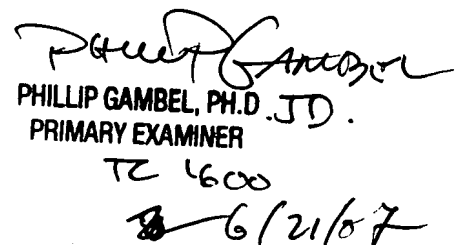 PHILLIP GAMBEL
PHILLIP GAMBEL, PH.D. JD.
PRIMARY EXAMINER
TC 1600
6/21/07